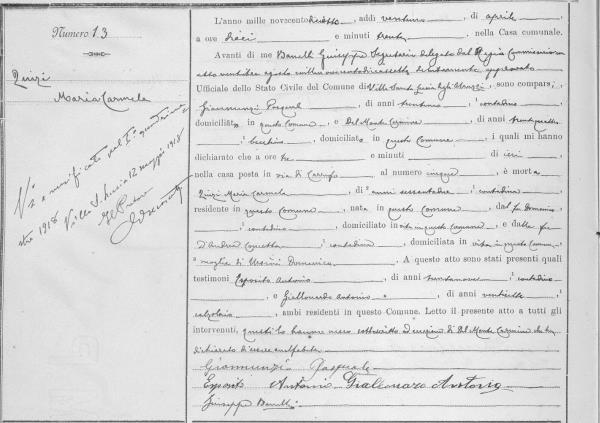 Numero 13
Quizi
Maria Carmela
Visto e verificato nel I° quadrime
stre 1918 Villa S. Lucia 12 maggio 1918
Il Pretore
L'anno mille novecentodiciotto, addì ventuno, di aprile,
a ore dieci e minuti trenta, nella Casa comunale.
Avanti di me Banelli Giuseppe Segretario delegato dal Regio Commissario
atto ventitre agosto millenovecentodiciassette debitamente approvato
Ufficiale dello Stato Civile del Comune di Villa Santa Lucia degli Abruzzi, sono comparsi
Giannunzio Pasquale, di anni, contadino,
domiciliato in questo Comune, e Del Monte Carmine, di anni
, domiciliato in questo Comune, i quali mi hanno
dichiarato che a ore tre e minuti di ieri, in
nella casa posta in via di al numero cinque, è morta
Quizi Maria Carmela, di anni sessantadue, contadina,
residente in questo Comune, nata in questo Comune, dal fu Domenico,
, contadino, domiciliato in vita in questo Comune, e dalla fu
D'Andrea Concetta, contadina, domiciliata in vita in questo Comune,
moglie di Ursini Domenico. A questo atto sono stati presenti quali
testimoni Esposito Antonio, di anni trentanove, contadino,
, e Giallonardo Antonio, di anni ventisette,
calzolaio, ambi residenti in questo Comune. Letto il presente atto a tutti gli
intervenuti, questi lo hanno meco sottoscritto ad eccezione di Del Monte Carmine che ha
dichiarato di essere analfabeta
Giannunzio Pasquale
Esposito Antonio Giallonardo Antonio
Giuseppe Banelli